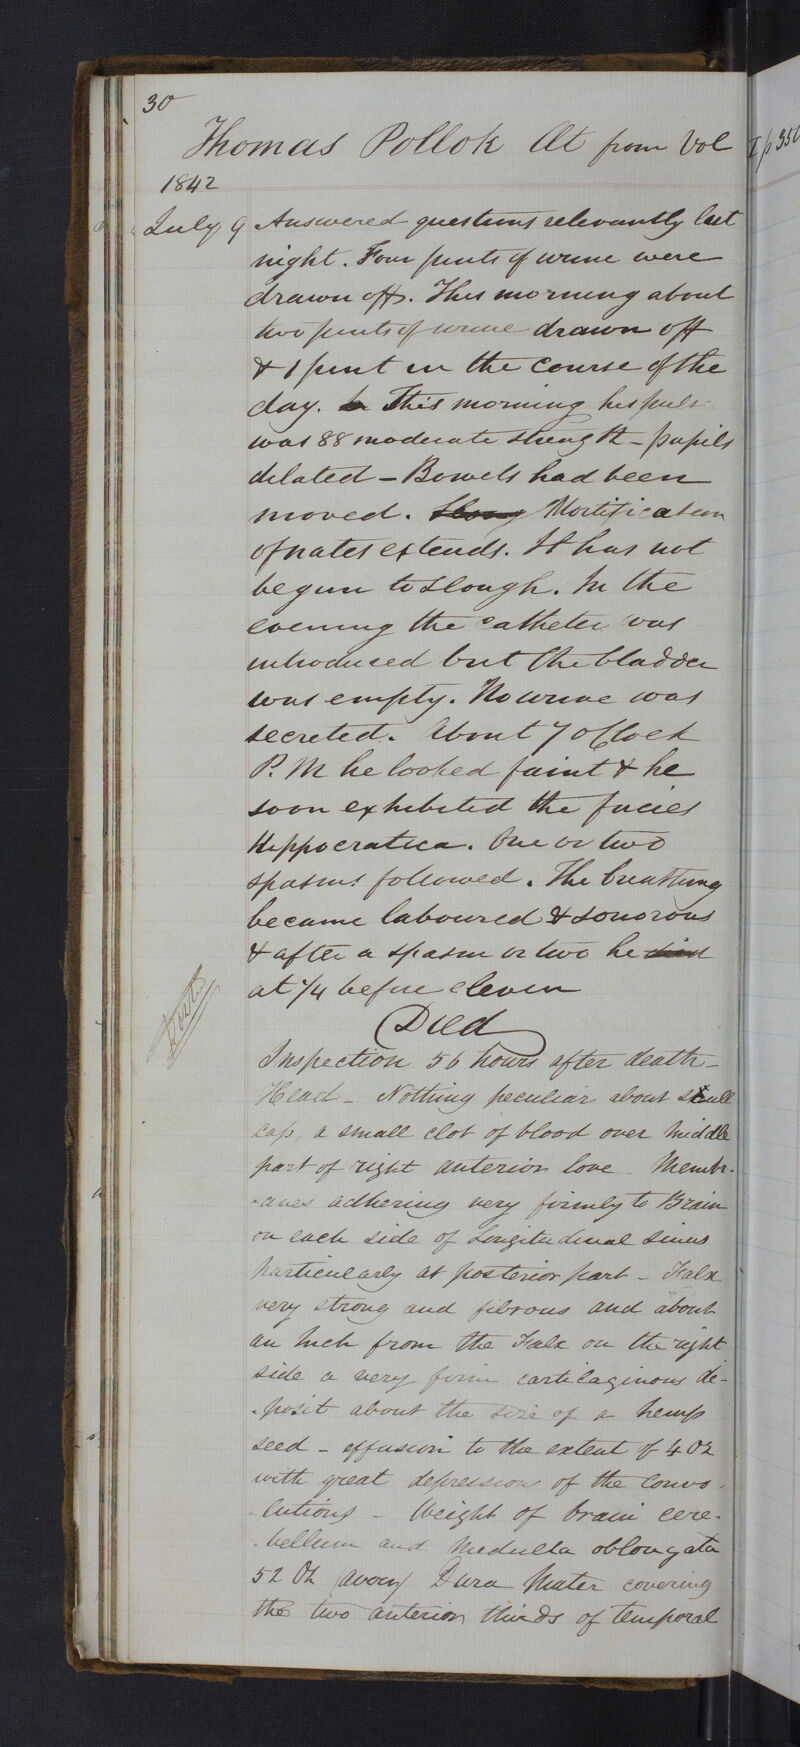 30
Thomas Pollok Æt from Vol I p 350
1842
July 9 Answered questions relevantly last
night. Four pints of urine were
drawn off. This morning about
two pints of urine drawn off
& 1 pint in the course of the
day. In This morning his pulse
was 88 moderate strength - pupils
dilated - Bowels had been
moved. Sloug Mortification
of nates extends. It has not
begun to slough. In the
evening the catheter was
introduced but the bladder
was empty. No urine was
secreted. About 7 o'Clock
P.M he looked faint & he
soon exhibited the facies
Hippocratica. One or two
spasms followed. The breathing
became laboured & sonorous
& after a spasm or two he died
at 1/4 before eleven
Died
Inspection 56 hours after death -
Head - Nothing peculiar about skull
cap, a small clot of blood over middle
part of right anterior love - Membr-
-anes adhering very firmly to Brain
on each side of Longitudinal sinus
particularly at posterior part - Falx
very strong and fibrous and about
an Inch from the Falx on the right
side a very firm cartilaginous de-
-posit about the size of a hemp
seed - effusion to the extent of 4 Oz
with great depression of the Convo-
-lutions - Weight of brain cere-
-bellum and Medulla oblongata
52 Oz (avoir) Dura Mater covering
the two anterior thirds of temporal